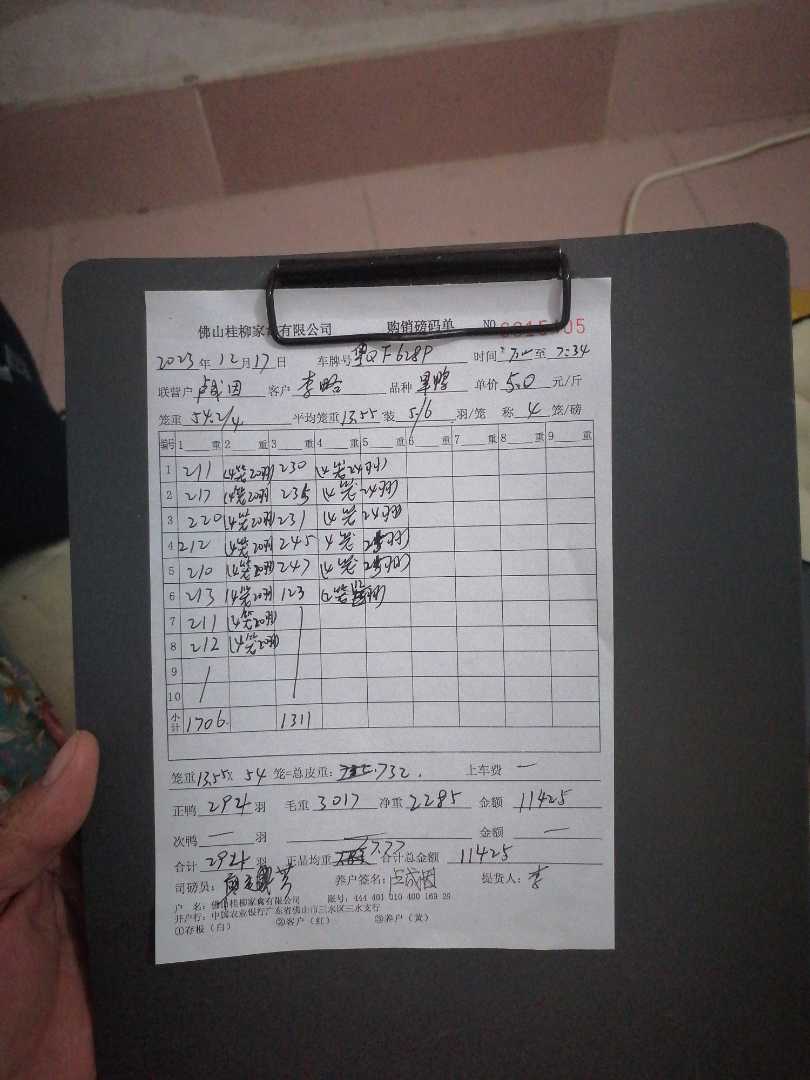 佛山桂柳家禽有限公司 购销磅码单 NO
2023年12月17日 车牌号粤QF628P 时间 至 7:34
联营户 客户 李 品种 单价 5.0 元/斤
笼重 54.2/4 平均笼重 13.55 装 5/6 羽/笼 称 4 笼/磅
编号 1 重 2 重 3 重 4 重 5 重 6 重 7 重 8 重 9 重
1 211 (4笼20羽) 230 (4笼24羽)
2 217 (4笼20羽) 235 (4笼24羽)
3 220 (4笼20羽) 231 (4笼24羽)
4 212 (4笼20羽) 245 4笼 25羽)
5 210 (4笼20羽) 247 (4笼25羽)
6 213 (4笼20羽) 123 (2笼12羽)
7 211 (4笼20羽)
8 212 (4笼20羽)
9
10
小计 1706. 1311
笼重 13.55 × 54 笼=总皮重: 732. 上车费 一
正鸭 294 羽 毛重 3017 净重 2285 金额 11425
次鸭 一 羽 金额 一
合计 294 羽 正品均重 7.77 合计总金额 11425
司磅员: 养户签名: 卢成 提货人: 李
户 名: 佛山桂柳家禽有限公司 账号: 444 401 010 400 169 26
开户行: 中国农业银行广东省佛山市三水区三水支行
①存根(白) ②客户(红) ③养户(黄)